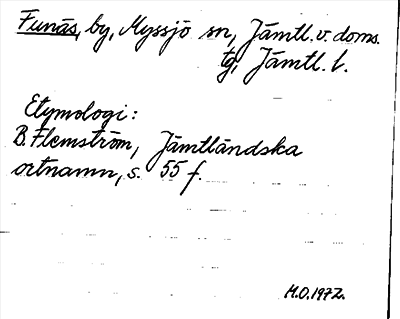 Funäs, by, Myssjö sn, Jämtl. v. doms.
tg, Jämtl. l.
Etymologi:
B. Flemström, Jämtländska
ortnamn, s. 55 f.
M.O. 1972.